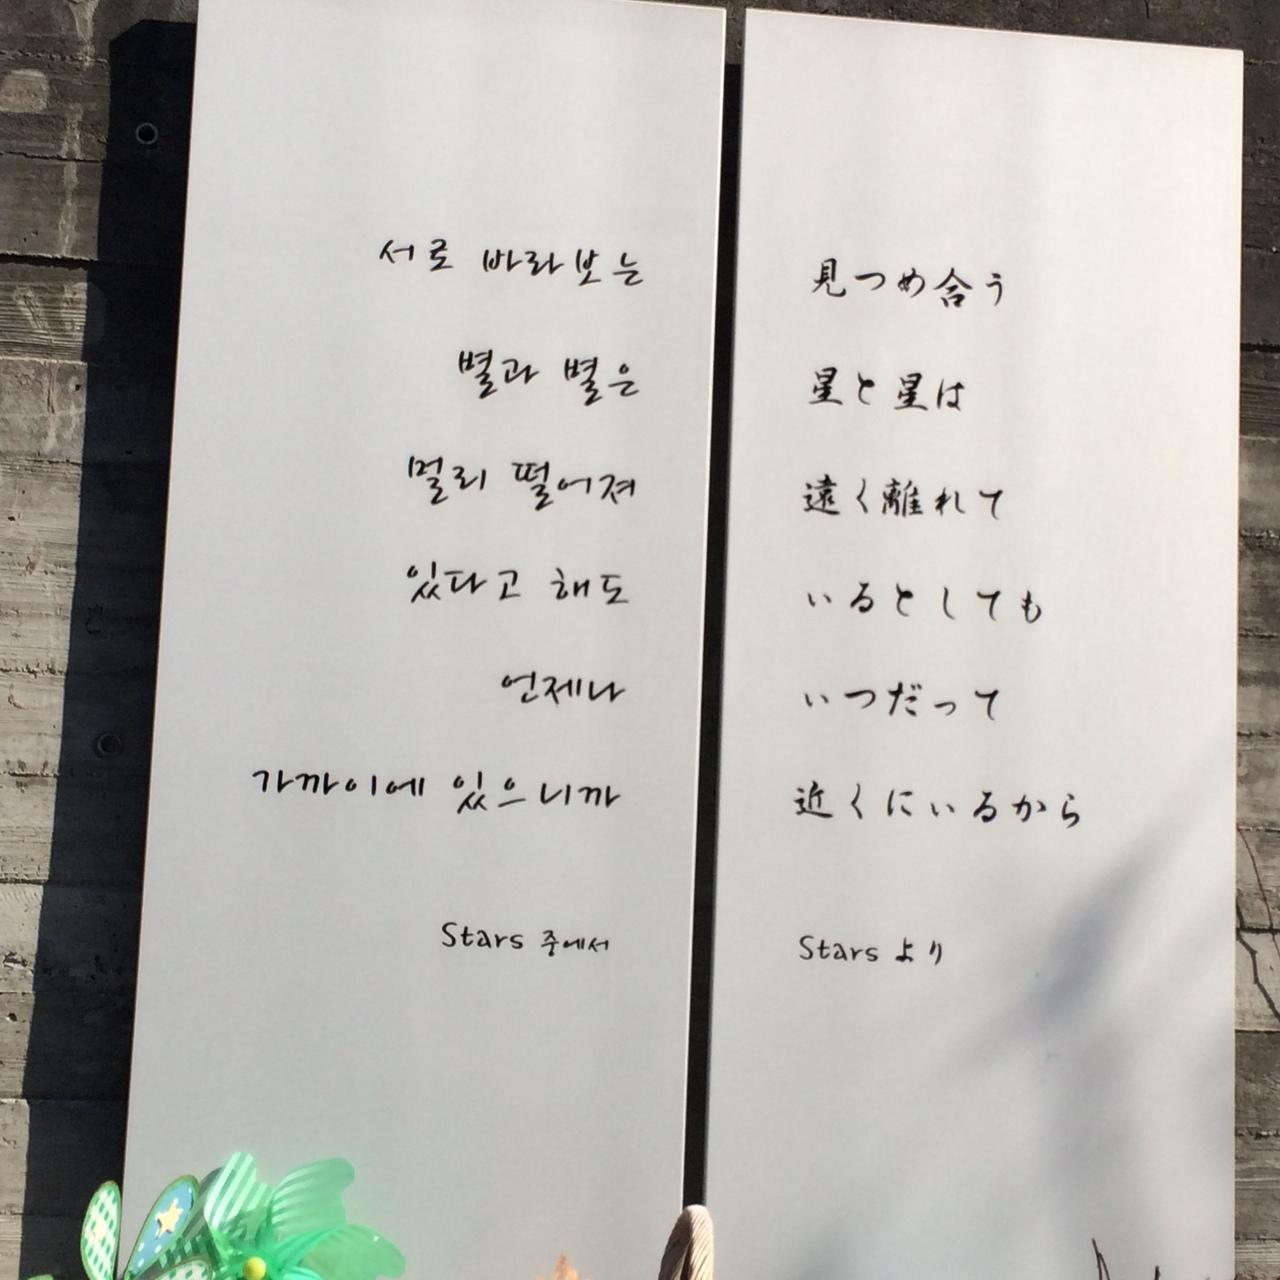 서로 바라보는
별과 별은
멀리 떨어져
있다고 해도
언제나
가까이에 있으니까
Stars 중에서
見つめ合う
星と星は
遠く離れて
いるとしても
いつだって
近くにいるから
Stars より